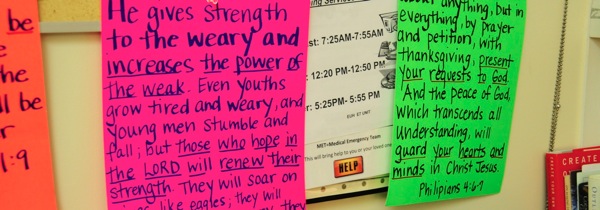 be
the
ll be
r
1:9
He gives strength
to the weary and
increases the power of
the weak. Even youths
grow tired and weary, and
young men stumble and
fall; But those who hope in
the LORD will renew their
strength. They will soar on
like eagles; they will
they
7:25AM-7:55AM
12:20 PM-12:50 PM
5:25PM- 5:55 PM
MET=Medical Emergency Team
This will bring help to you or your loved one
HELP
anything, but in
everything, by prayer
and petition, with
thanksgiving, present
your requests to God.
And the peace of God,
which transcends all
understanding, will
guard your hearts and
minds in Christ Jesus.
Philipians 4:6-7
CREATE